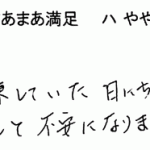 あまあ満足 ハ やや
していた 日にち
して 不安になりま